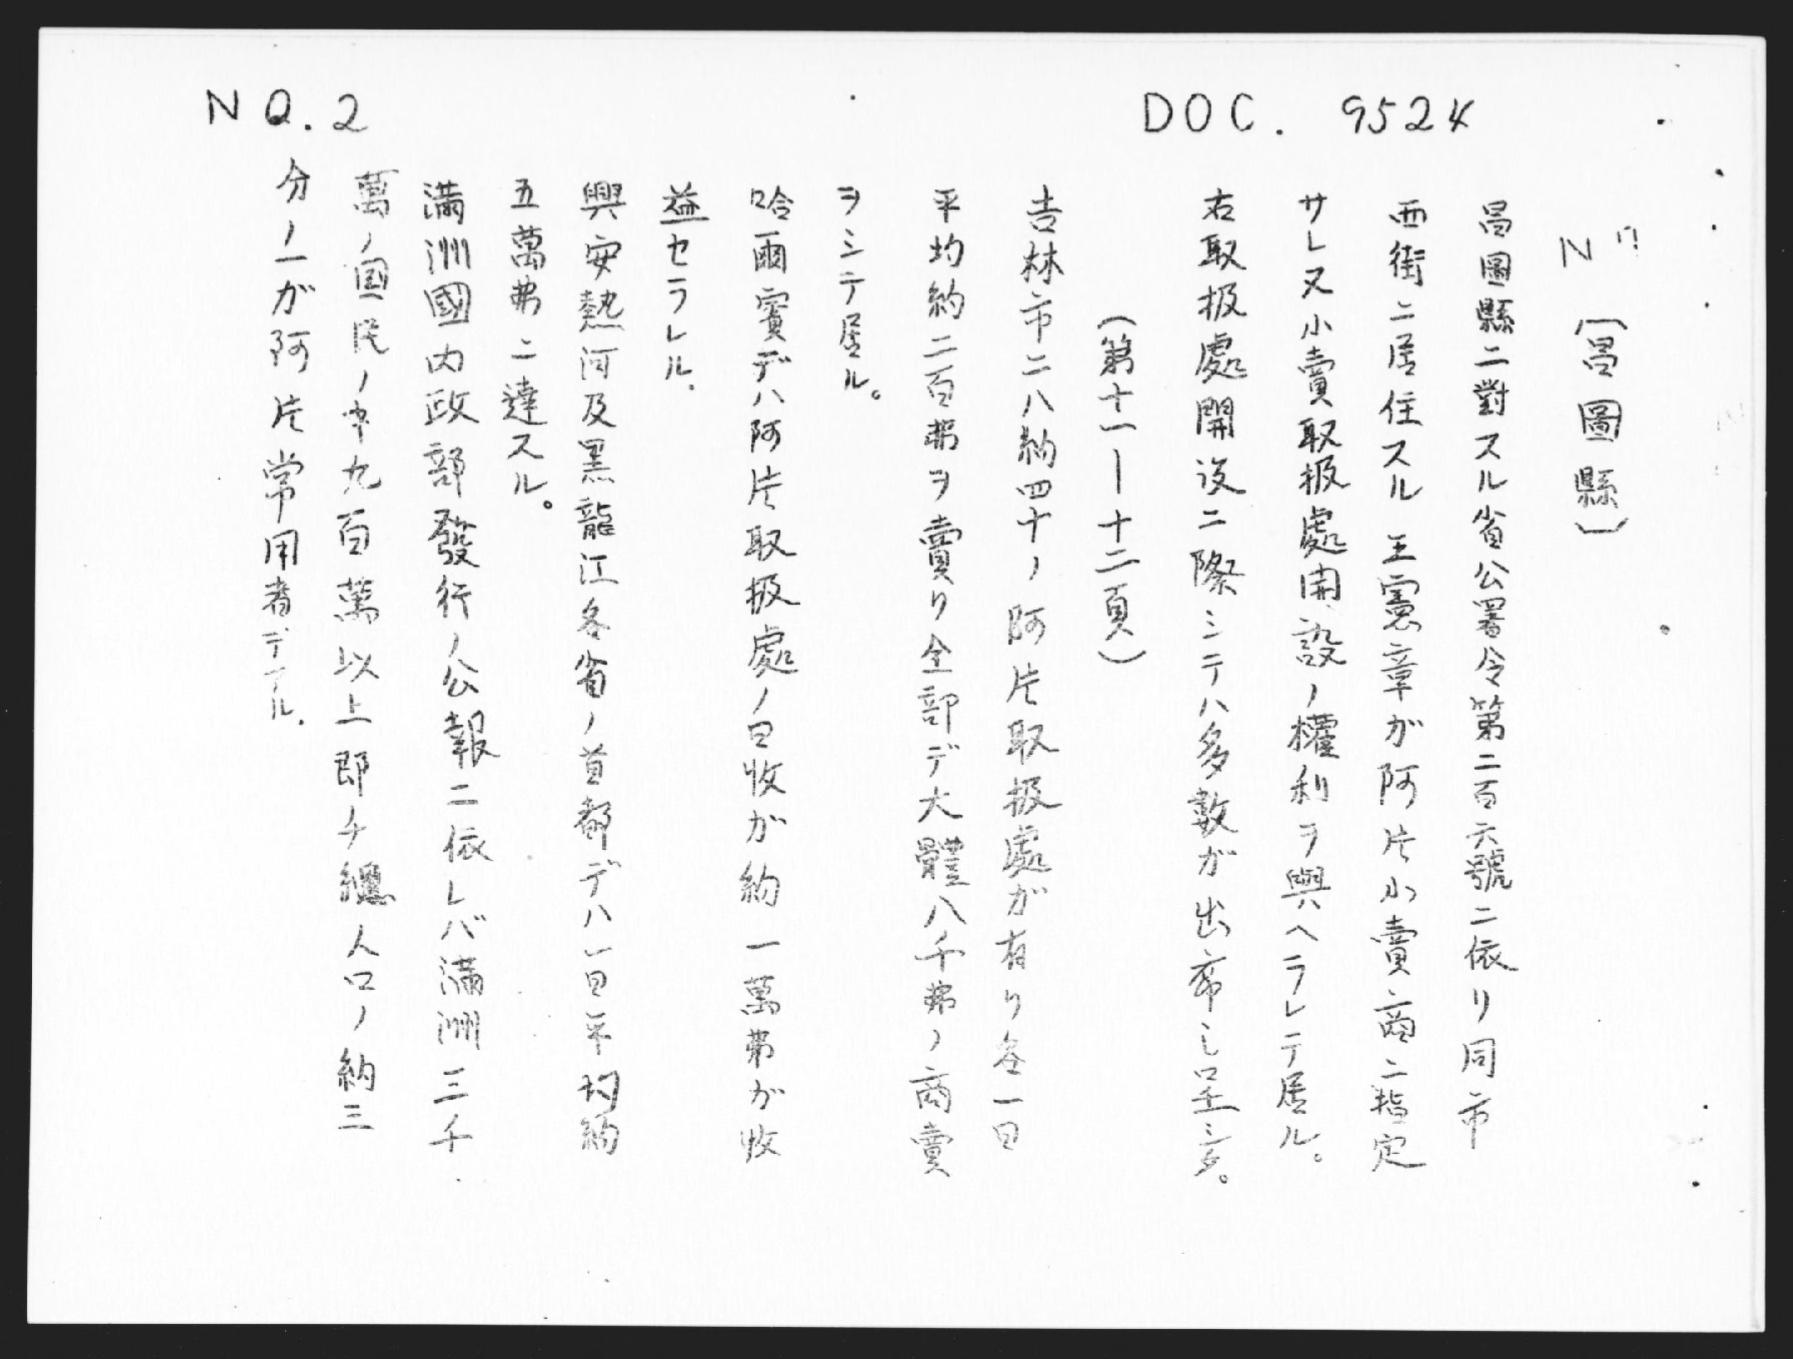 DOC. 9524
NO. 2
N 〔昌圖縣〕
昌圖縣ニ對スル省公署令第二百六號ニ依リ同市
西街ニ居住スル王憲章ガ阿片小賣商ニ指定
サレ又小賣取扱處開設ノ權利ヲ與ヘラレテ居ル。
右取扱處開設ニ際シテハ多數ガ出席シ呈シタ。
(第十一―十二頁)
吉林市ニハ約四十ノ阿片取扱處ガ有リ各一日
平均約二百弗ヲ賣リ全部デ大體八千弗ノ商賣
ヲシテ居ル。
哈爾賓デハ阿片取扱處ノ日收ガ約一萬弗ガ收
益セラレル.
興安熱河及黑龍江各省ノ首都デハ一日平均約
五萬弗ニ達スル。
滿洲國內政部發行ノ公報ニ依レバ滿洲三千
萬ノ国民ノ中九百萬以上即チ總人口ノ約三
分ノ一ガ阿片常用者デアル.